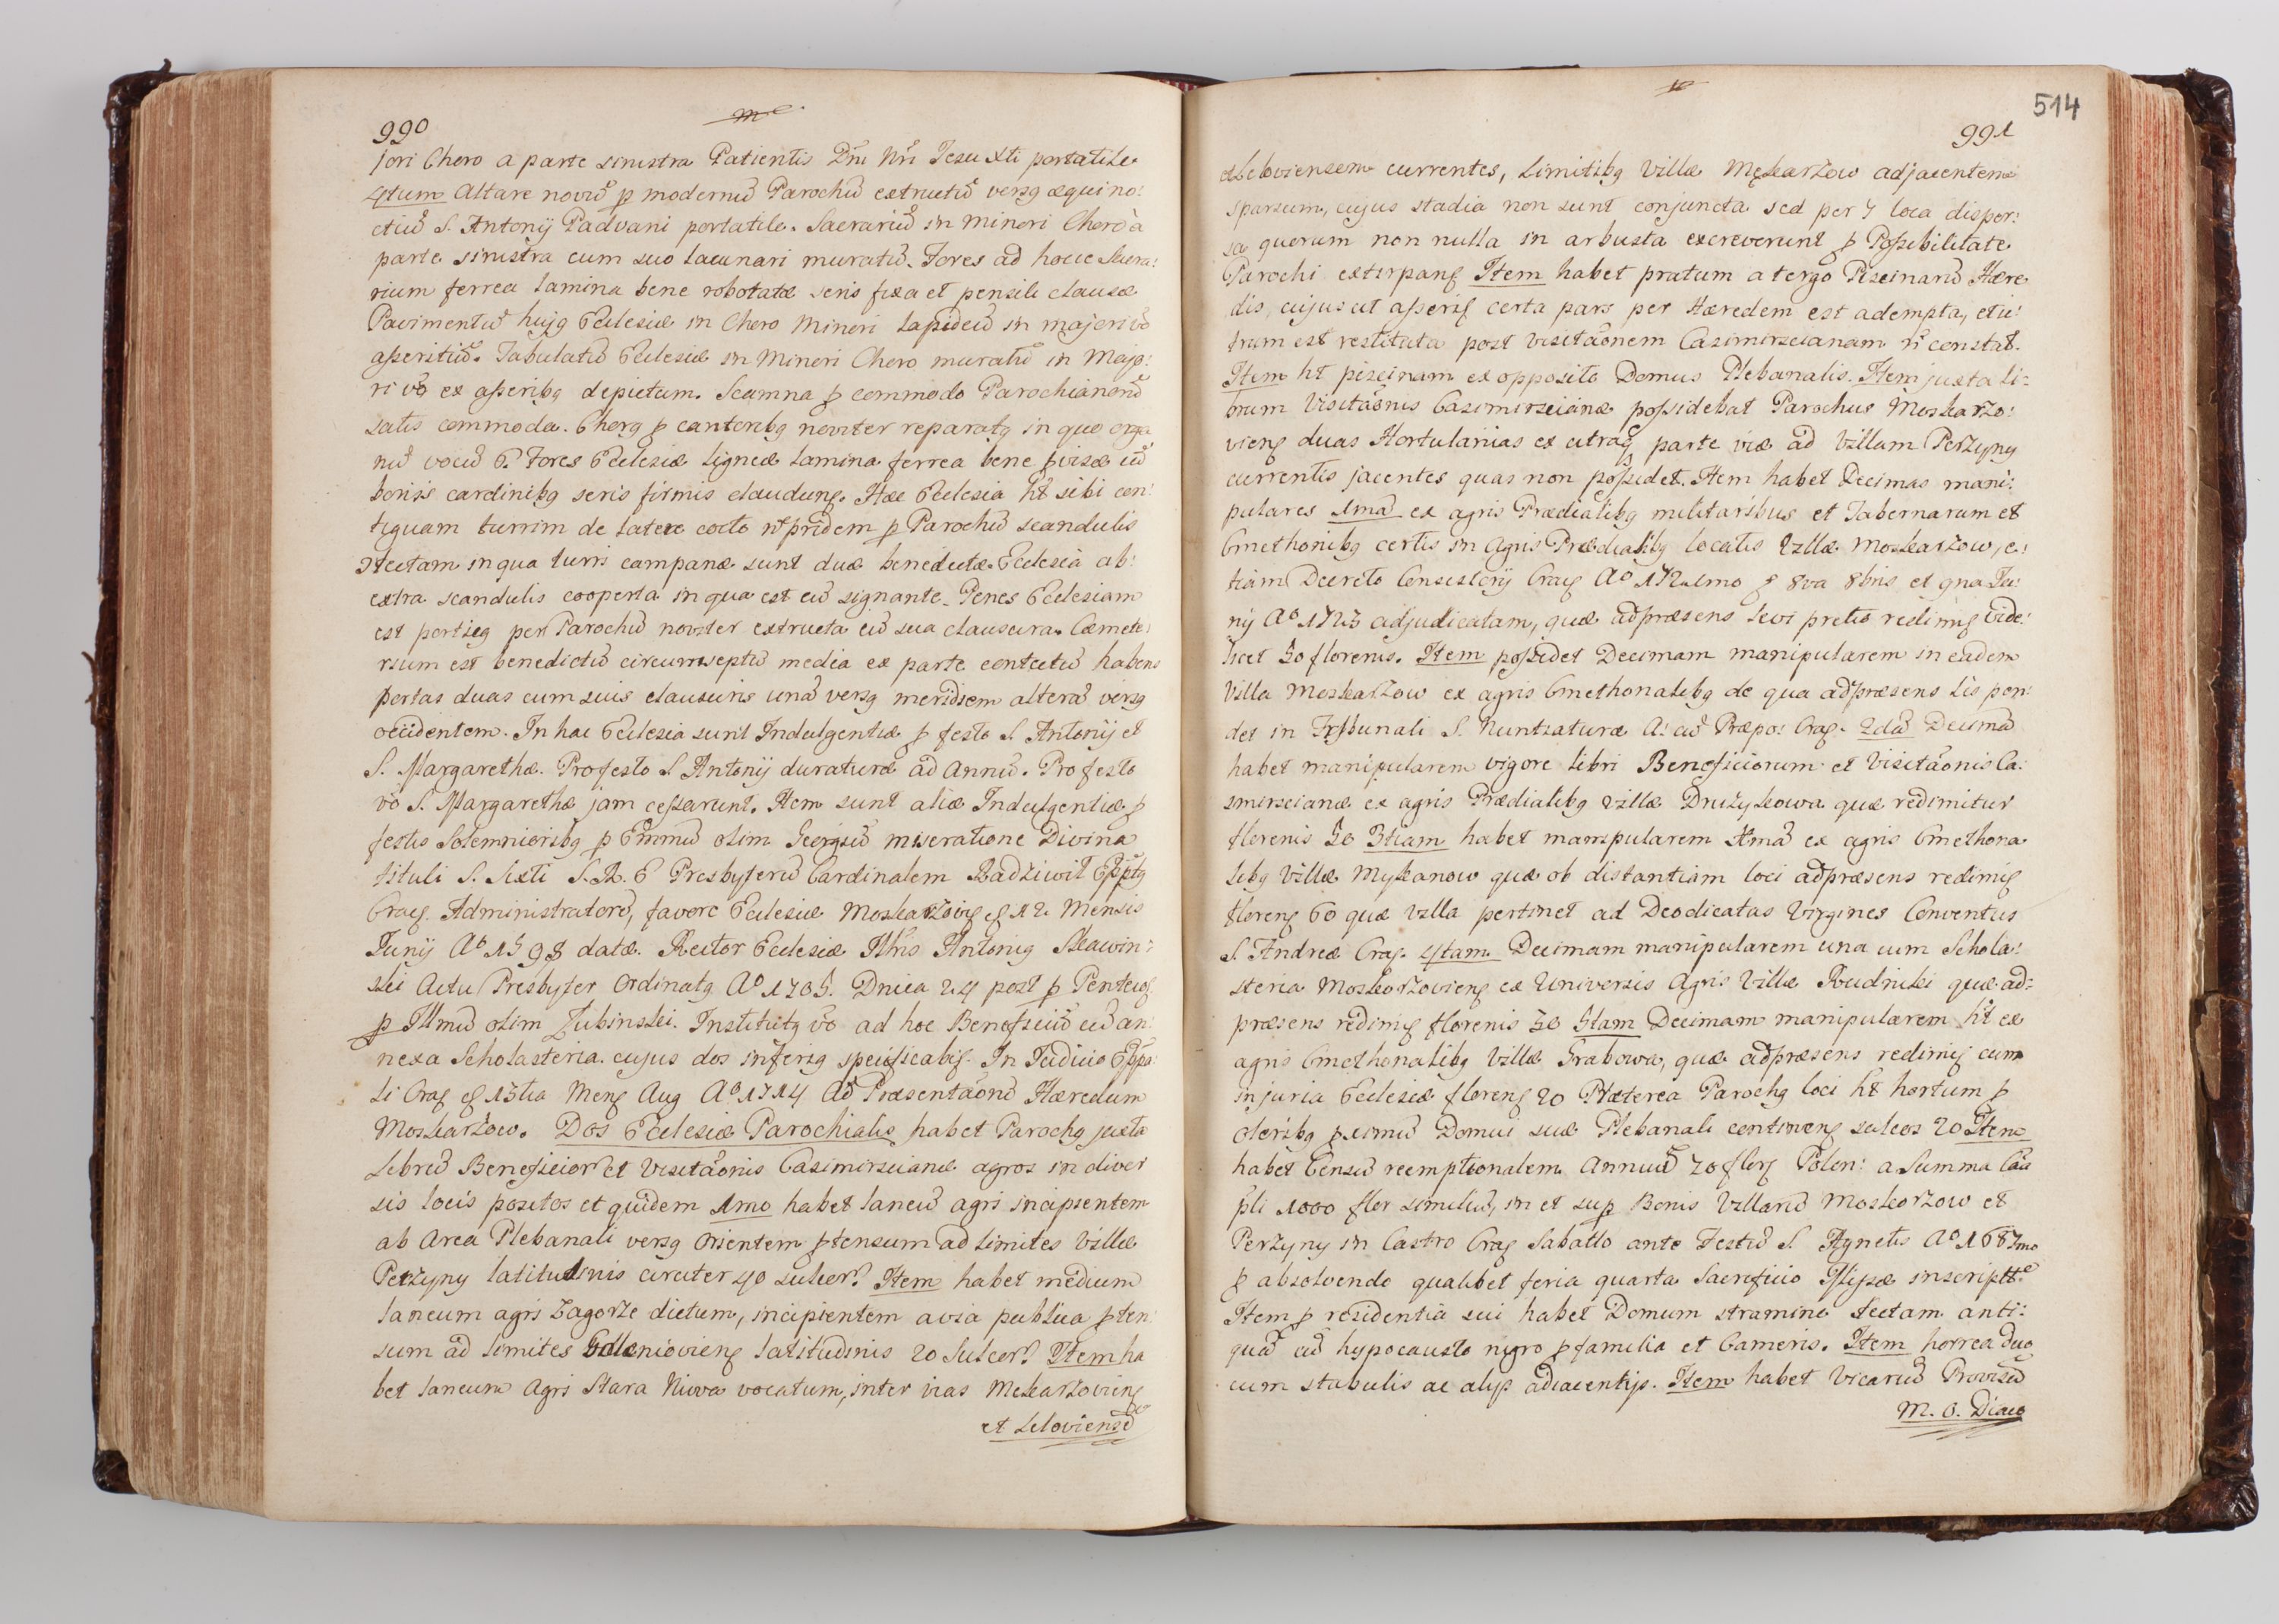 990
jori Choro a parte sinistra Patientis Dñi Nri Jesu Xti portatile
4tum Altare novũ p modernũ Parochũ extructũ versq æquino:
ctiũ S. Antonij Padvani portatile. Sacrariũ in minori Choro à
parte sinistra cum suo lacunari muratũ. Fores ad hocce Sacra:
rium ferrea lamina bene robotatæ seris fixa et pensili clausæ
Pavimentũ hujq Ecclesiæ in Choro Minori lapideũ in majori vo
asseritiũ. Tabulatũ Ecclesiæ in Minori Choro muratũ in Majo:
ri vo ex asseribq depictum. Scamna p commodo Parochianorũ
satis commoda. Chorq p cantoribq noviter reparatq in quo orga
nũ vocũ 6. Fores Ecclesiæ ligneæ lamina ferrea bene pvisæ cũ
bonis cardinibq seris firmis claudunt. Hæc Ecclesia ht sibi con:
tiguam turrim de latere cocto nõ pridem p Parochũ scandulis
tectam in qua turri campanæ sunt duæ benedictæ. Ecclesia ab:
extra scandulis cooperta in qua est cũ signante. Penes Ecclesiam
est porticq per Parochũ noviter extructa cũ sua clausura. Cæmete:
rium est benedictũ circumseptũ media ex parte contectũ habens
portas duas cum suis clausuris unã versq meridiem alterã versq
occidentem. In hac Ecclesia sunt Indulgentiæ p festo S. Antonij et
S. Margarethæ. Pro festo S Antonij duraturæ ad annũ. Pro festo
vo S. Margarethæ jam cessarunt. Item sunt aliæ Indulgentiæ p
festis Solemnioribq p Emmũ olim Georgiũ miseratione Divina
tituli S. Sixti S. R. E Presbyterũ Cardinalem Radziwil Epptq
Crac. Administratorẽ, favore Ecclesiæ Moskarzoviens 12 Mensis
Junij Ao 1598 datæ. Rector Ecclesiæ Illris Antoniq Sławin:
ski Actu Presbyter Ordinatq Ao 1705. Dnica 24 post p Pentecos
p Illmũ olim Łubinski. Institutq vo ad hoc Beneficiũ cũ an:
nexa Scholasteria. cujus dos inferiq specificabit. In Judicio Eppa:
li Crac 13tia Mens Aug Ao 1714 Ad Præsentaõnẽ Hæredum
Moskarzow. Dos Ecclesiæ Parochialis habet Parochq juxta
Librũ Beneficior et Visitaõnis Casimirscianæ agros in diver
sis locis positos et quidem 1mo habet laneũ agri incipientem
ab Area Plebanali versq Orientem ptensum ad limites Villæ
Perzyny latitudinis circiter 40 sulcor? Item habet medium
laneum agri Zagorze dictum, incipientem a via publica pten
sum ad limites latitudinis 20 Sulcor? Item ha
bet laneum Agri Stara Niwa vocatum, inter vias Moskarzoviens
et Leloviensẽ
514
991
et Leloviensem currentes, limitibq Villæ Męskarzow adjacentem
sparsum, cujus stadia non sunt conjuncta sed per 7 loca disper:
sa quorum non nulla in arbusta excreverunt p Possibilitate
Parochi extirpans Item habet pratum a tergo Piscinarũ Hære
dis, cujus ut asserit certa pars per Hæredem est adempta, et u:
trum est restituta post Visitaõnem Casimirscianam ñ constat.
Item ht piscinam ex opposito Domus Plebanalis. Item juxta li:
brum Visitaõnis Casimirscianæ possidebat Parochus Moskarzo:
viens duas Hortulanias ex utraq parte viæ ad Villam Perzyny
currentis jacentes quas non possidet. Item habet Decimas mani:
pulares 1mã ex agris Prædialibq militaribus et Tabernarum et
Cmethonibq certis in Agris Prædialibq locatis Villæ Moskarzow, e:
tiam Decreto Consistorij Crac Ao 1721mo 8va 8bris et qna Ju:
nij Ao 1723 adjudicatam, quæ adpræsens levi pretio redimit vide:
licet 50 florenis. Item possidet Decimam manipularem in eadem
Villa Moskarzow ex agris Cmethonalibq de qua adpræsens lis pen:
det in Tribunali S. Nuntiaturæ A: cũ Præpo: Crac. 2dã Decimã
habet manipularem vigore libri Beneficiorum et Visitaõnis Ca:
smirscianæ ex agris Prædialibq Villæ Drużykowa quæ redimitur
florenis 50 3tiam habet manipularem Xmã ex agris Cmethona
libq Villæ Mykanow quæ ob distantiam loci adpræsens redimit
florens 60 quæ villa pertinet ad Deodicatas Virgines Conventus
S. Andreæ Crac. 4tam Decimam manipularem una cum Schola:
steria Moskorzoviens ex Universis Agris Villæ Rudniki quæ ad:
præsens redimit florenis 50 5tam Decimam manipularem ht ex
agris Cmethonalibq Villæ Grabowa, quæ adpræsens redimit cum
injuria Ecclesiæ florens 20 Præterea Parochq loci ht hortum p
oleribq pximũ Domui suæ Plebanali continens sulcos 20 Item
habet Censũ reemptionalem Annuũ 70 flor Polon: a Summa Ca
pli 1000 flor similiũ, in et sup Bonis Villarũ Moskorzow et
Perzyny in Castro Crac Sabatto ante Festũ S. Agnetis Ao 1687mo
p absolvendo qualibet feria quarta Sacrificio Missæ inscript.
Item p residentia sui habet Domum stramine tectam anti:
quã cũ hypocausto nigro p familia et Cameris. Item horrea duo
cum stabulis ac alijs adiacentijs. Item habet Vicariũ Provisũ
M. O. Diaco